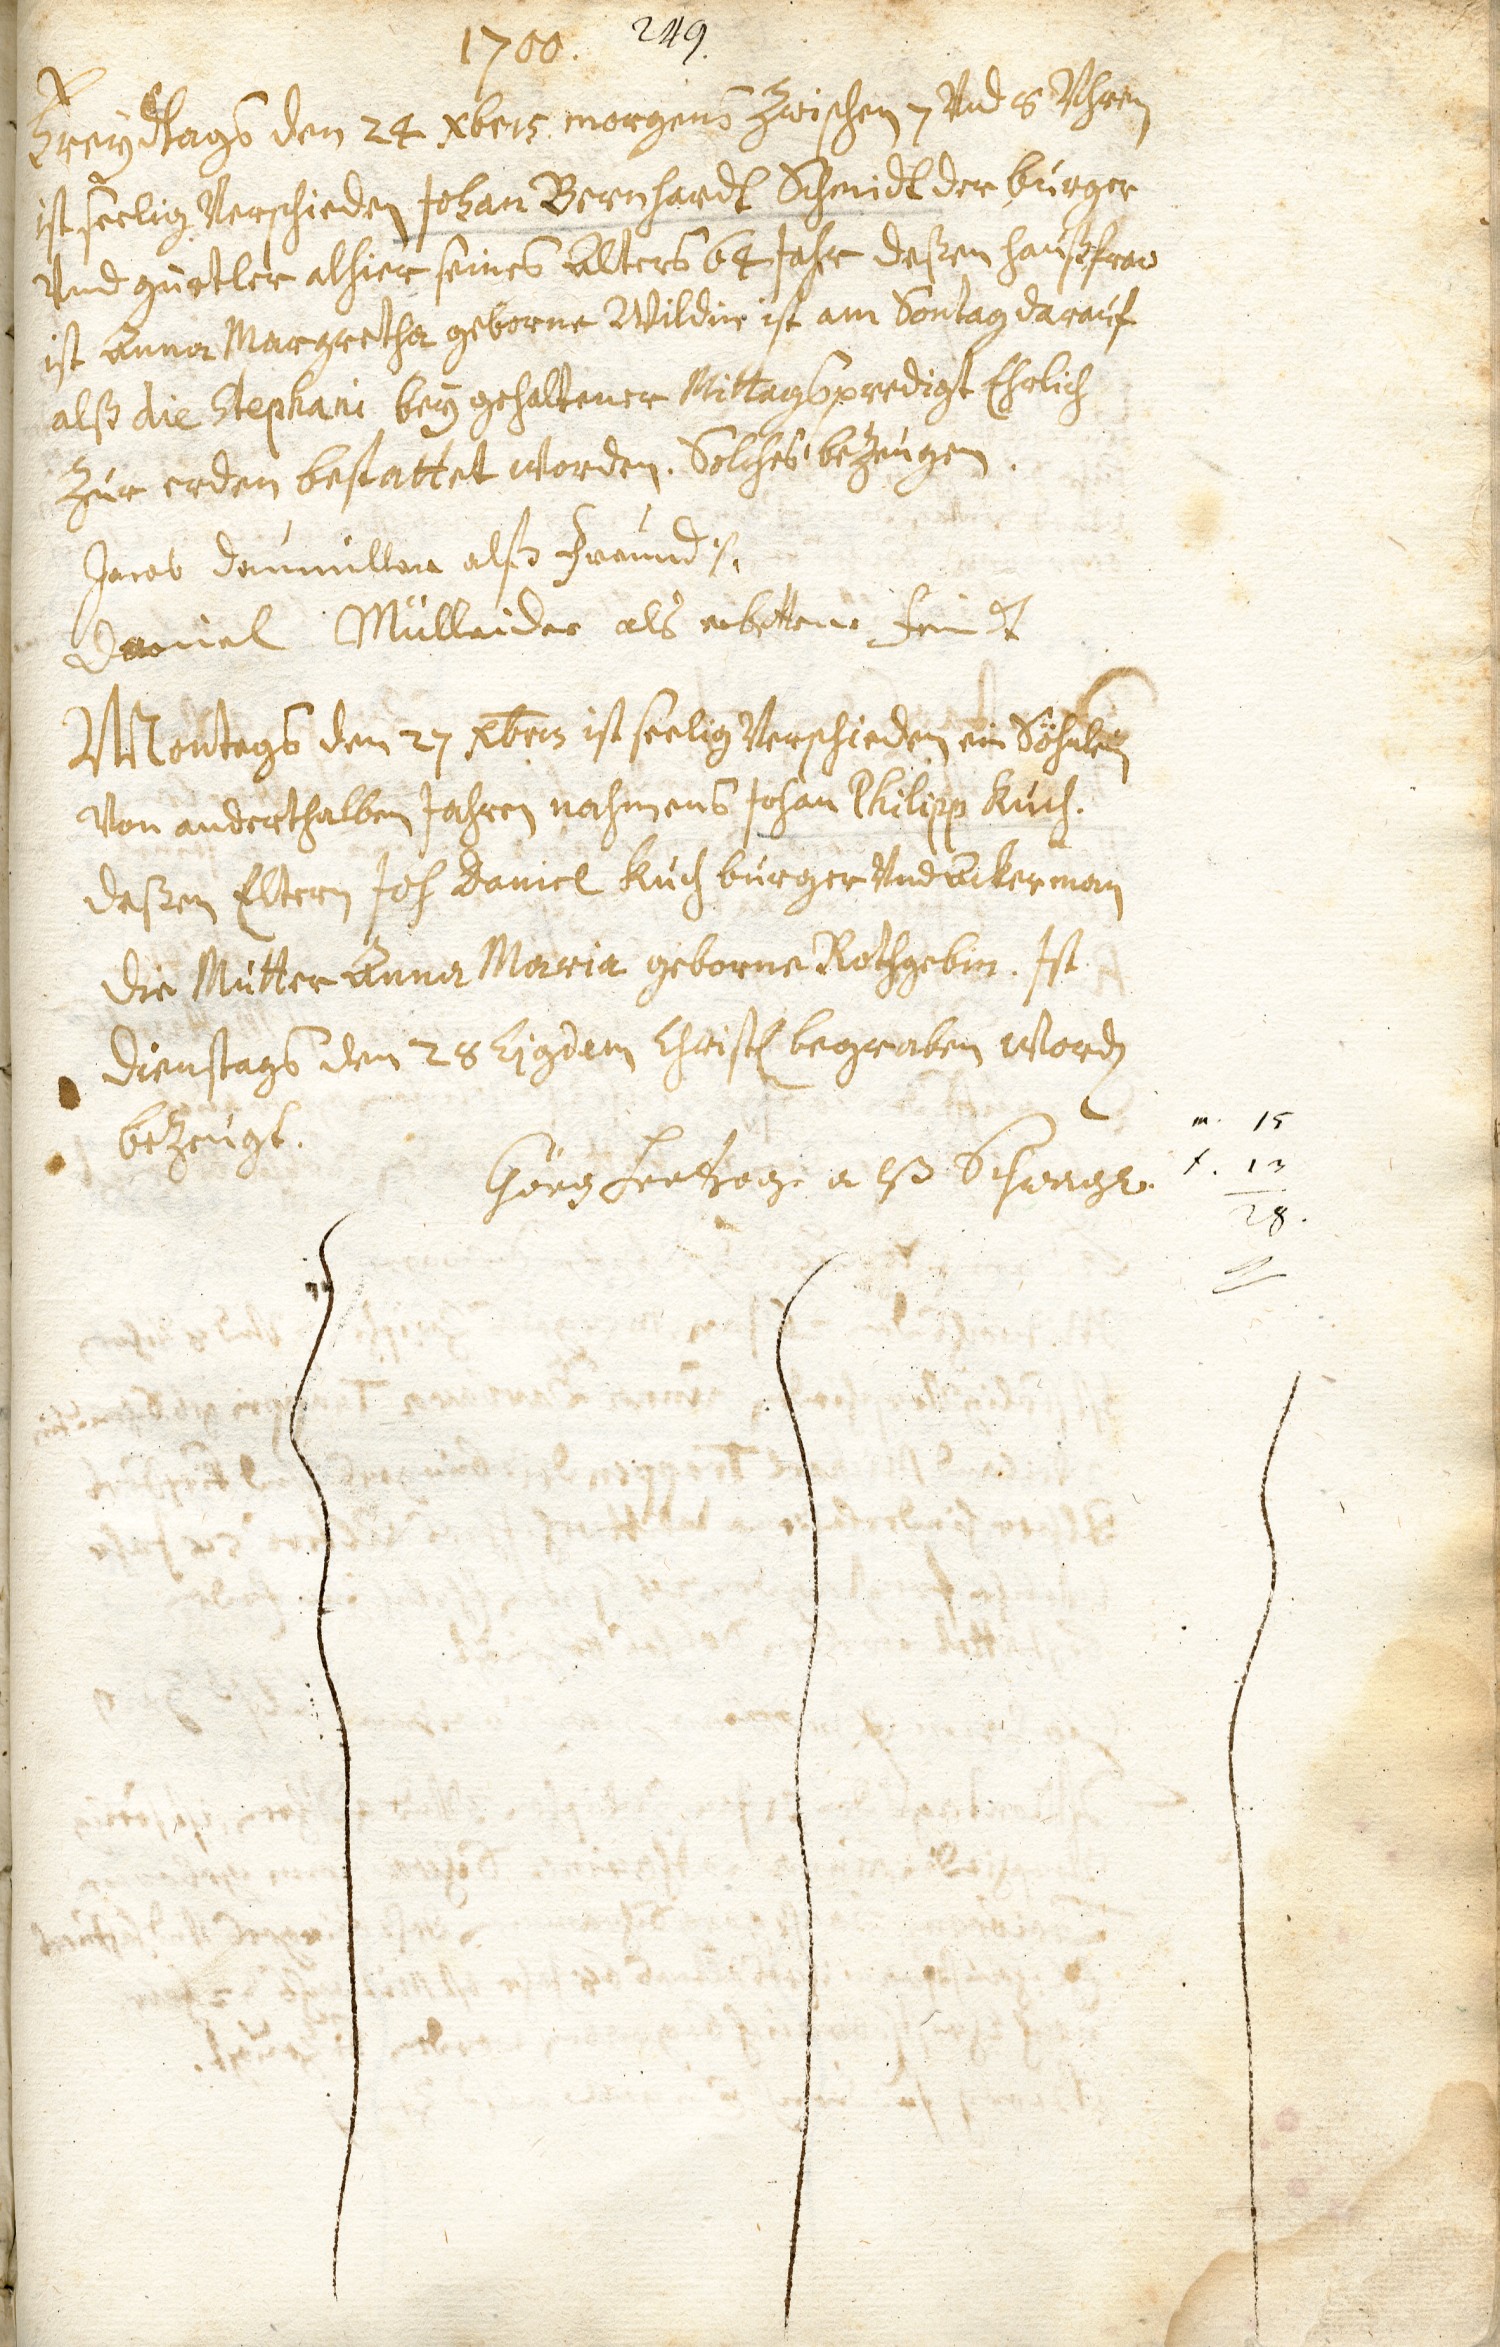 1700. 249.
Freydtags den 24 Xbris morgens Zwischen 7 Vnd 8 Vhren
ist seelig Verschieden Johan Bernhardt Schmidt der burger
Vnd gürtler alhier seines Alters 64 Jahr deßen haußfraw
ist Anna Margretha geborne Wildin ist am Sontag darauf
alß die Stephani bey gehaltener Mittagspredigt Ehrlich
Zur erden bestattet worden. Solches beZeugen.
Jacob alß freund
Daniel als erbettener
Montags den 27 Xbris ist seelig Verschieden ein Söhnlein
Von anderthalben Jahren nahmens Johan Philipp Kuch.
deßen Eltern Joh Daniel Kuch burger Vnd Ackerman
die Mutter Anna Maria geborne Rothgebin. Ist
Dienstags den 28 Ejusdem Christl begraben word
beZeugt.
Görg alß Schwager.
m. 15
f. 13
28.